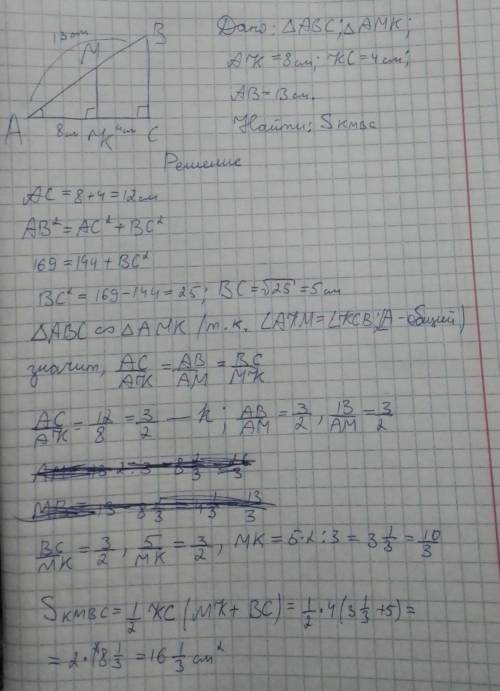 13 см
B
M
A
8 см
K
4 см
C
Дано: △ABC; △AMK;
AK = 8 см; KC = 4 см;
AB = 13 см.
Найти: S KMBC
Решение
AC = 8 + 4 = 12 см
AB² = AC² + BC²
169 = 144 + BC²
BC² = 169 - 144 = 25; BC = √25 = 5 см
△ABC ∾ △AMK (т.к. ∠AKM = ∠KCB; ∠A - общий)
значит, AC/AK = AB/AM = BC/MK
AC/AK = 12/8 = 3/2 — k; AB/AM = 3/2, 13/AM = 3/2
BC/MK = 3/2, 5/MK = 3/2, MK = 5·2:3 = 3 1/3 = 10/3
S KMBC = 1/2 KC (MK + BC) = 1/2 · 4 (3 1/3 + 5) =
= 2 · 8 1/3 = 16 1/3 см²